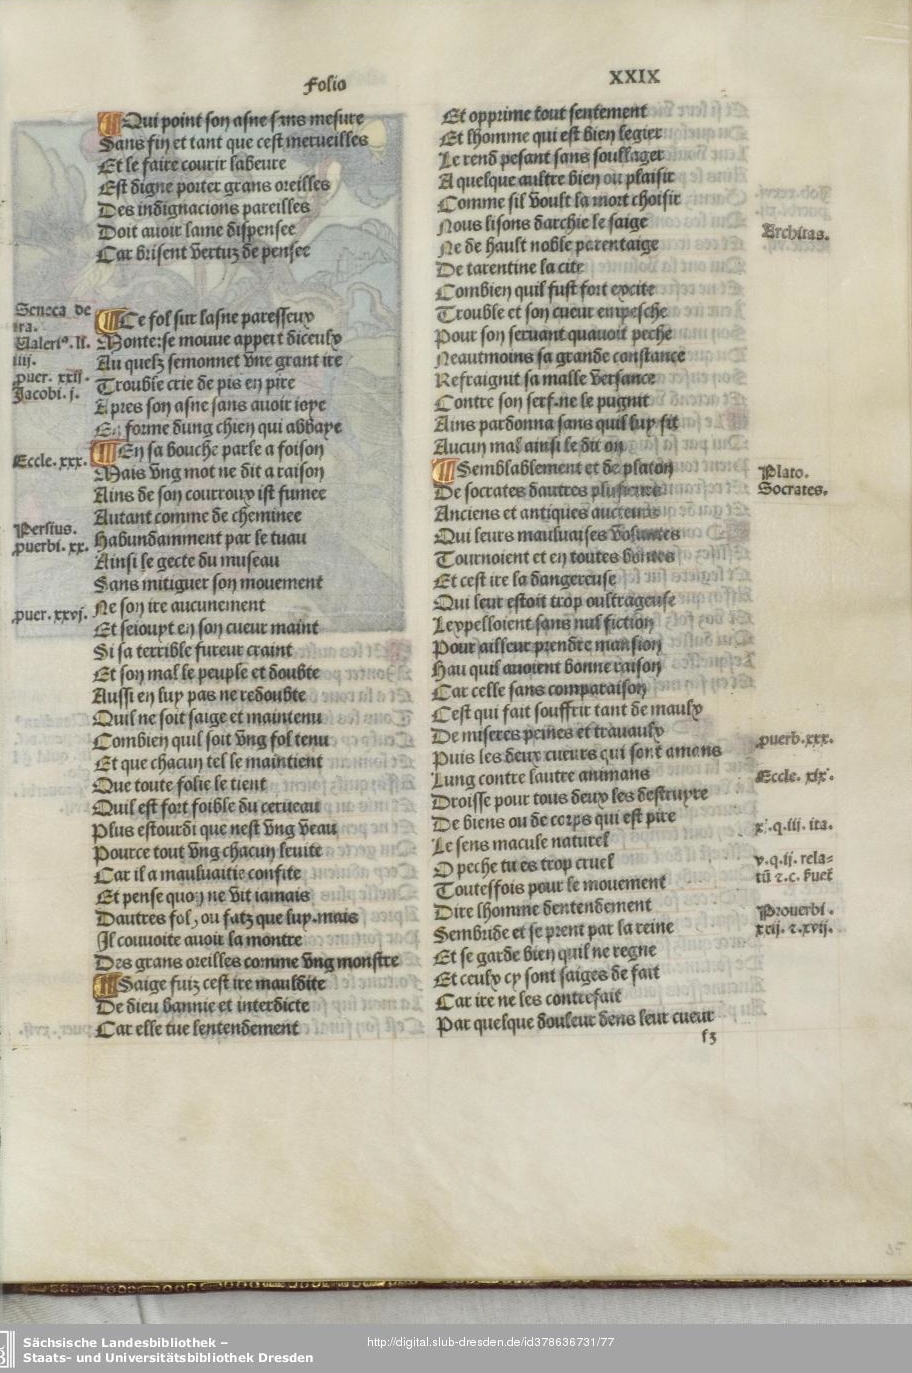 Folio
XXIX
Qui point son asne sans mesure
Sans fin et tant que cest merueilles
Et le faire courir labeure
Est digne porter grans oreilles
Des indignacions pareilles
Doit auoir lame dispensee
Car brisent vertuz de pensee
Ce fol sur lasne paresseux
Monte: se mouue appert diceulx
Au quelz semonnet vne grant ire
Trouble crie de pis en pire
Apres son asne sans auoir ioye
En forme dung chien qui abbaye
En sa bouche parle a foison
Mais vng mot ne dit a raison
Ains de son courroux ist fumee
Autant comme de cheminee
Habundamment par le tuau
Ainsi le gecte du museau
Sans mitiguer son mouement
Ne son ire aucunement
Et seiouyt en son cueur maint
Si sa terrible fureur craint
Et son mal le peuple et doubte
Aussi en luy pas ne redoubte
Quil ne soit saige et maintenu
Combien quil soit vng fol tenu
Et que chacun tel le maintient
Que toute folie le tient
Quil est fort foible du cerueau
Plus estourdi que nest vng veau
Pource tout vng chacun leuite
Car il a mauluaitie confite
Et pense quon ne vit iamais
Dautres fol, ou fatz que luy. mais
Il couuoite auoir la montre
Des grans oreilles comme vng monstre
Saige fuiz cest ire mauldite
De dieu bannie et interdicte
Car elle tue lentendement
Seneca de
ira.
Ualeriꝰ. li.
iiii.
ꝓuer. xxii.
Jacobi. j.
Eccle. xxx.
Persius.
ꝓuerbi. xx.
ꝓuer. xxvj.
Et opprime tout sentement
Et lhomme qui est bien legier
Le rend pesant sans soullager
A quelque aultre bien ou plaisir
Comme sil voult la mort choisir
Nous lisons darchie le saige
Ne de hault noble parentaige
De tarentine la cite
Combien quil fust fort excite
Trouble et son cueur empesche
Pour son seruant quauoit peche
Neautmoins sa grande constance
Refraignit sa malle versance
Contre son serf. ne le pugnit
Ains pardonna sans quil luy fit
Aucun mal ainsi le dit on
Semblablement et de platon
De socrates dautres plusieurs
Anciens et antiques aucteurs
Qui leurs mauluaises voluntes
Tournoient et en toutes bontes
Et cest ire la dangereuse
Qui leur estoit trop oultrageuse
Lexpelloient sans nul fiction
Pour ailleur prendre mansion
Hau quil auoient bonne raison
Car celle sans comparaison
Cest qui fait souffrir tant de maulx
De miseres peines et trauaulx
Puis les deux cueurs qui sont amans
Lung contre lautre animans
Droisse pour tous deux les destruyre
De biens ou de corps qui est pire
Le sens macule naturel
O peche tu es trop cruel
Toutesfois pour le mouement
Dire lhomme dentendement
Sembride et se prent par la reine
Et se garde bien quil ne regne
Et ceulx cy sont saiges de fait
Car ire ne les contrefait
Par quelque douleur dens leur cueur
f3
Architas.
Plato.
Socrates.
ꝓuerb. xxx.
Eccle. xix.
x. q. iii. ira.
v. q. ij. rela-
tū ⁊. c.
Prouerbi.
xvij. ⁊. xvij.
Sächsische Landesbibliothek –
Staats- und Universitätsbibliothek Dresden
http://digital.slub-dresden.de/id378636731/77